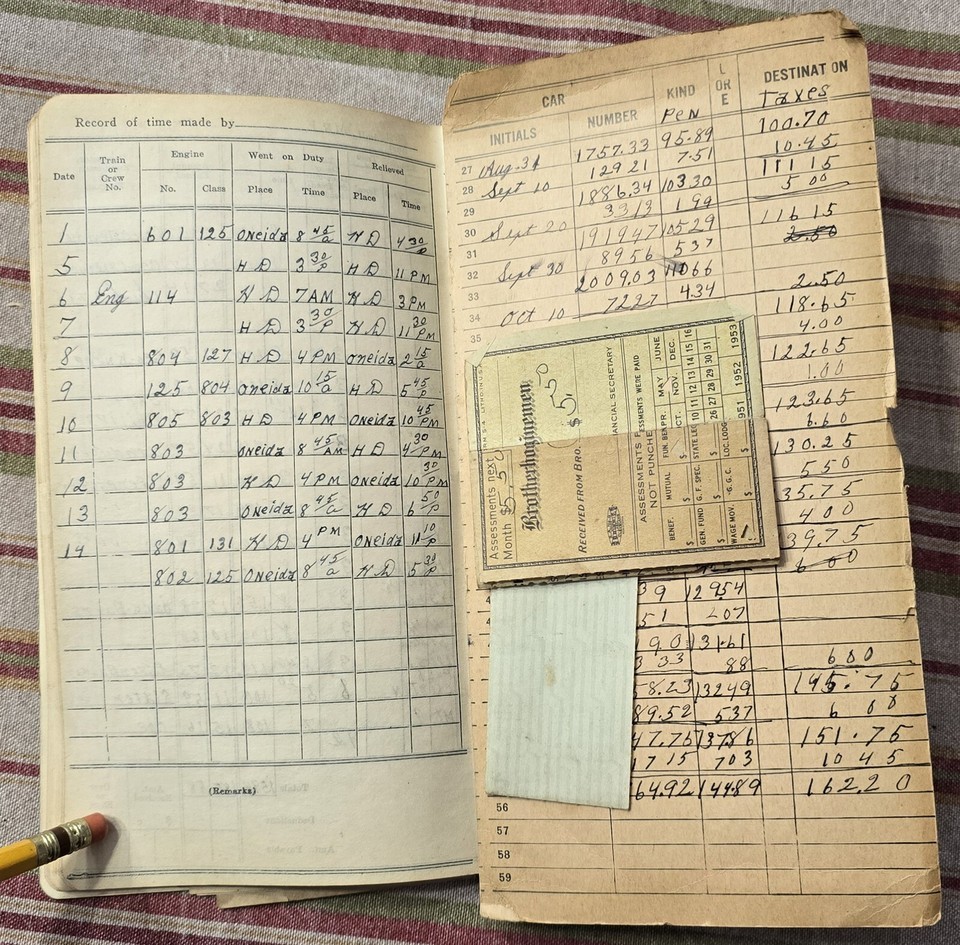 Record of time made by
Date Train or Crew No. Engine Went on Duty Relieved
No. Class Place Time Place Time
1 601 125 Oneida 8 45 a H D 4 30 P
5 H D 3 30 P H D 11 PM
6 Eng 114 H D 7 AM H D 3 PM
7 H D 3 30 P H D 11 30 PM
8 804 127 H D 4 PM Oneida 2 15 a
9 125 804 Oneida 10 15 a H D 5 45 P
10 805 803 H D 4 PM Oneida 10 45 PM
11 803 Oneida 8 45 AM H D 4 30 PM
12 803 H D 4 PM Oneida 10 30 PM
13 803 Oneida 8 45 a H D 6 50 P
14 801 131 H D 4 PM Oneida 11 10 P
802 125 Oneida 8 45 a H D 5 30 P
(Remarks)
CAR L OR E DESTINATION
INITIALS NUMBER KIND
Pen Taxes
27 Aug. 31 1757.33 95.89 100.70
28 Sept 10 129 21 7.51 10.45
29 1886.34 103 30 111 15
30 Sept 20 33 13 1 99 5 00
31 1919 47 105 29 116 15
32 Sept 30 89 56 5 37 2.50
33 2009.03 110 66
34 Oct 10 72 27 4.34 2.50
35 118.65
4.00
122.65
1.00
123.65
6.60
130.25
5 50
35.75
4 00
39.75
6 00
Assessments next
Month $5.50
Brotherhoginemen
$5.50
RECEIVED FROM BRO.
ANCIAL SECRETARY
ASSESSMENTS
NOT PUNCHE
ESSMENTS WERE PAID
PR. MAY JUNE
CT. NOV. DEC.
BENEF. MUTUAL FUN. BEN
10 11 12 13 14 15 16
GEN. FUND G. F. SPEC. STATE LEG
26 27 28 29 30 31
WAGE MOV. G. G. C. LOC. LODG
951 1952 1953
39 129 54
51 2 07
90 131.61
33 88 6 00
58.23 132 49 145.75
89.52 5 37 6 00
47.75 137 86 151.75
17 15 7 03 10 45
64.92 144.89 162.20
56
57
58
59